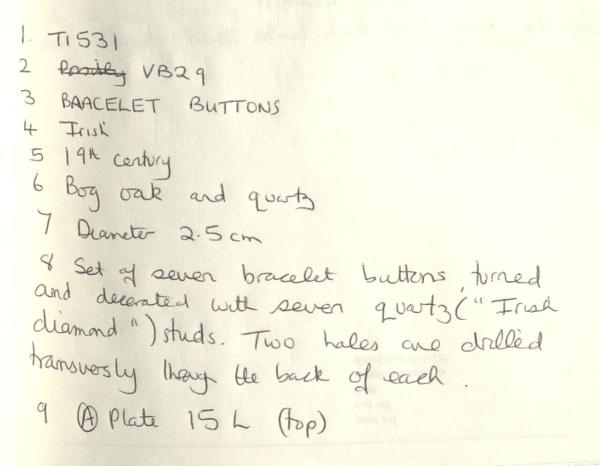 1. TI531
2 Possibly VB29
3 BAACELET BUTTONS
4 Irish
5 19th century
6 Bog oak and quartz
7 Diameter 2.5 cm
8 Set of seven bracelet buttons, turned
and decorated with seven quartz ("Irish
diamond") studs. Two holes are drilled
transversly through the back of each.
9 Ⓐ Plate 15 L (top)